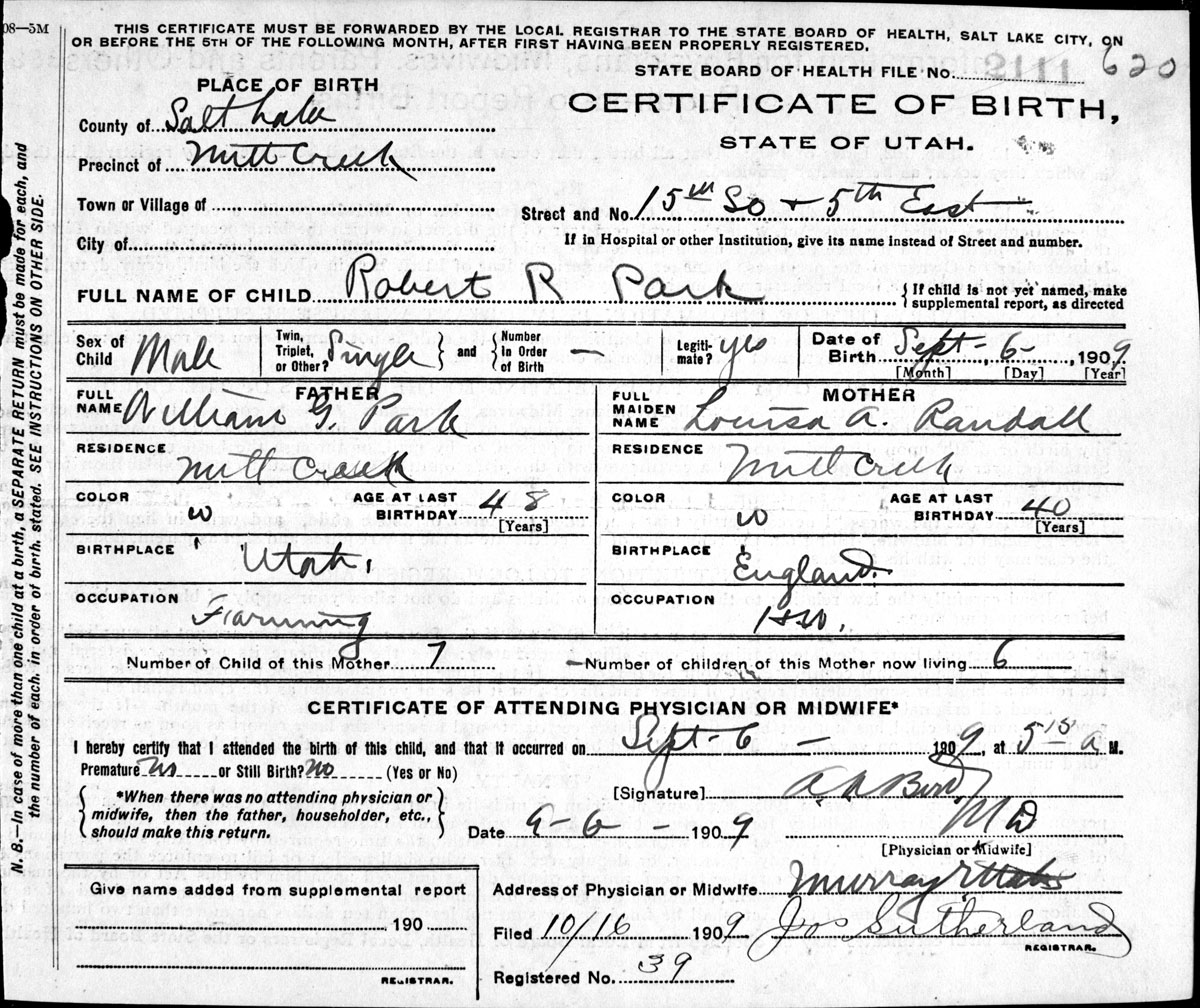 08—5M
THIS CERTIFICATE MUST BE FORWARDED BY THE LOCAL REGISTRAR TO THE STATE BOARD OF HEALTH, SALT LAKE CITY, ON
OR BEFORE THE 5TH OF THE FOLLOWING MONTH, AFTER FIRST HAVING BEEN PROPERLY REGISTERED.
STATE BOARD OF HEALTH FILE NO. 2111 620
PLACE OF BIRTH
CERTIFICATE OF BIRTH,
STATE OF UTAH.
County of Salt Lake
Precinct of Mill Creek
Town or Village of
Street and No. 15th So + 5th East
City of
If in Hospital or other Institution, give its name instead of Street and number.
FULL NAME OF CHILD Robert R Park
{If child is not yet named, make supplemental report, as directed
Sex of Child Male Twin, Triplet, or Other? Single } and { Number in Order of Birth — Legiti-mate? yes Date of Birth Sept - 6 - , 1909
[Month] [Day] [Year]
FATHER
FULL NAME William G. Park
MOTHER
FULL MAIDEN NAME Louisa A. Randall
RESIDENCE Mill Creek
RESIDENCE Mill Creek
COLOR W AGE AT LAST BIRTHDAY 48 [Years]
COLOR W AGE AT LAST BIRTHDAY 40 [Years]
BIRTHPLACE Utah.
BIRTHPLACE England.
OCCUPATION Farming
OCCUPATION H.W.
Number of Child of this Mother 7
Number of children of this Mother now living 6
CERTIFICATE OF ATTENDING PHYSICIAN OR MIDWIFE*
I hereby certify that I attended the birth of this child, and that it occurred on Sept - 6 - 1909, at 5 15 a M.
Premature No or Still Birth? No (Yes or No)
{*When there was no attending physician or midwife, then the father, householder, etc., should make this return.}
[Signature] M D
Date 9 - 6 - 1909
[Physician or Midwife]
Give name added from supplemental report
190
REGISTRAR.
Address of Physician or Midwife Murray
Filed 10/16 1909 Jos Sutherland
REGISTRAR.
Registered No. 39
N. B.—In case of more than one child at a birth, a SEPARATE RETURN must be made for each, and
the number of each, in order of birth, stated. SEE INSTRUCTIONS ON OTHER SIDE.